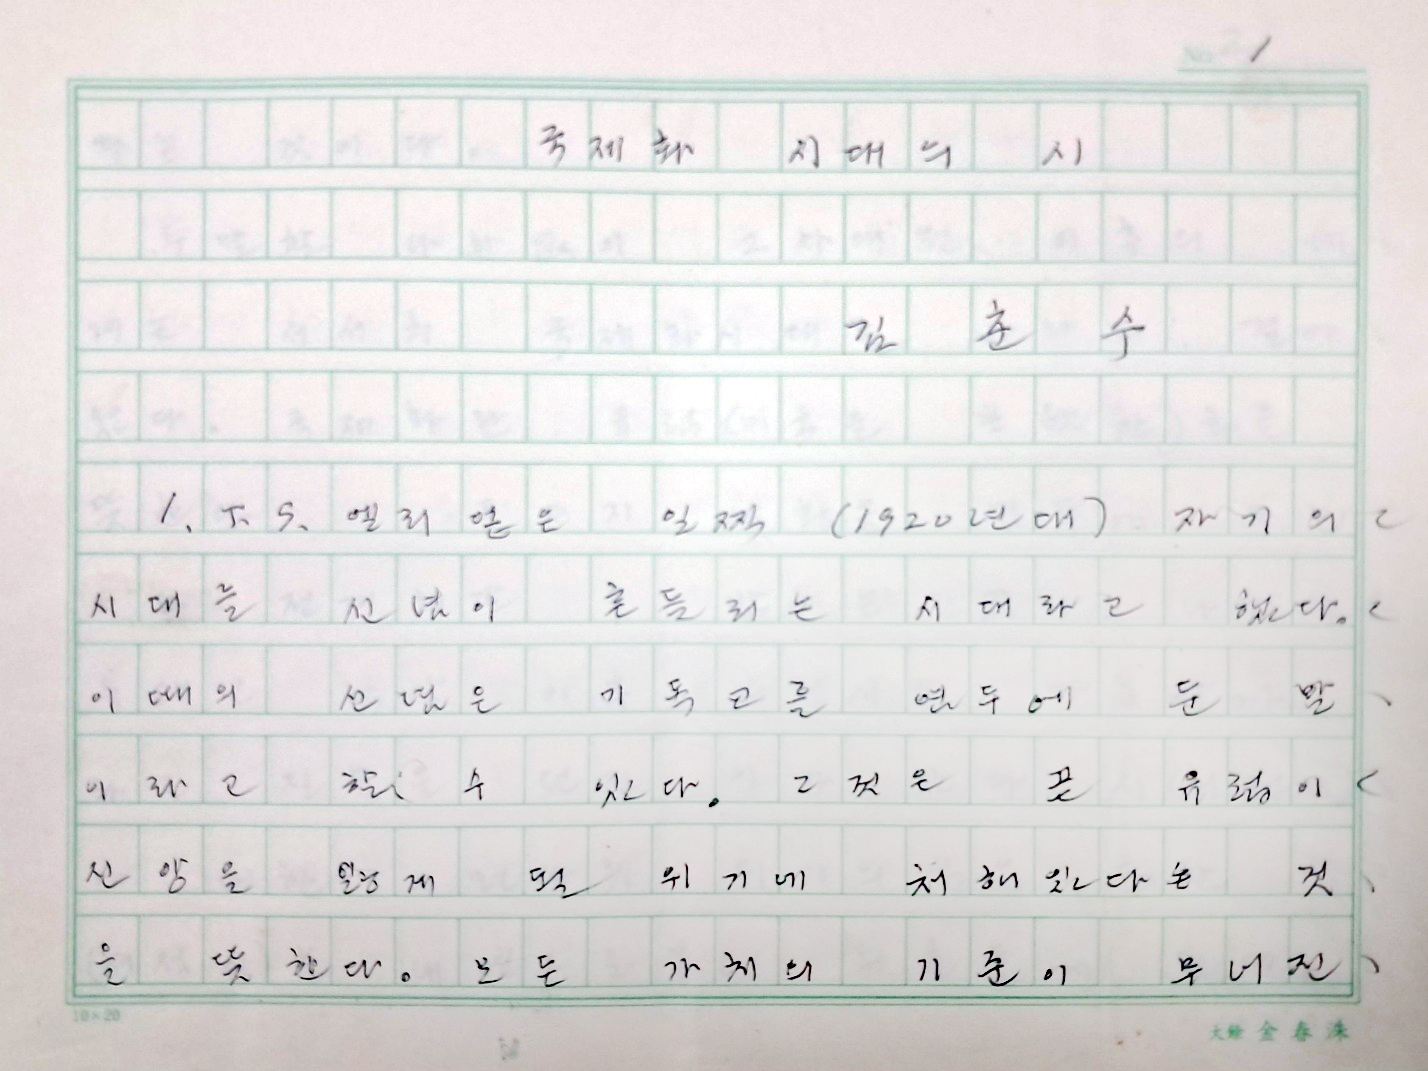 No. 1
국제화 시대의 시
김 춘 수
1. T.S. 엘리엍은 일찍 (1920년대) 자기의
시대를 신념이 흔들리는 시대라고 했다.
이때의 신념은 기독교를 염두에 둔 말
이라고 할 수 있다. 그것은 곧 유럽이
신앙을 잃게 될 위기에 처해있다는 것
을 뜻한다. 모든 가치의 기준이 무너진
10×20
金春洙